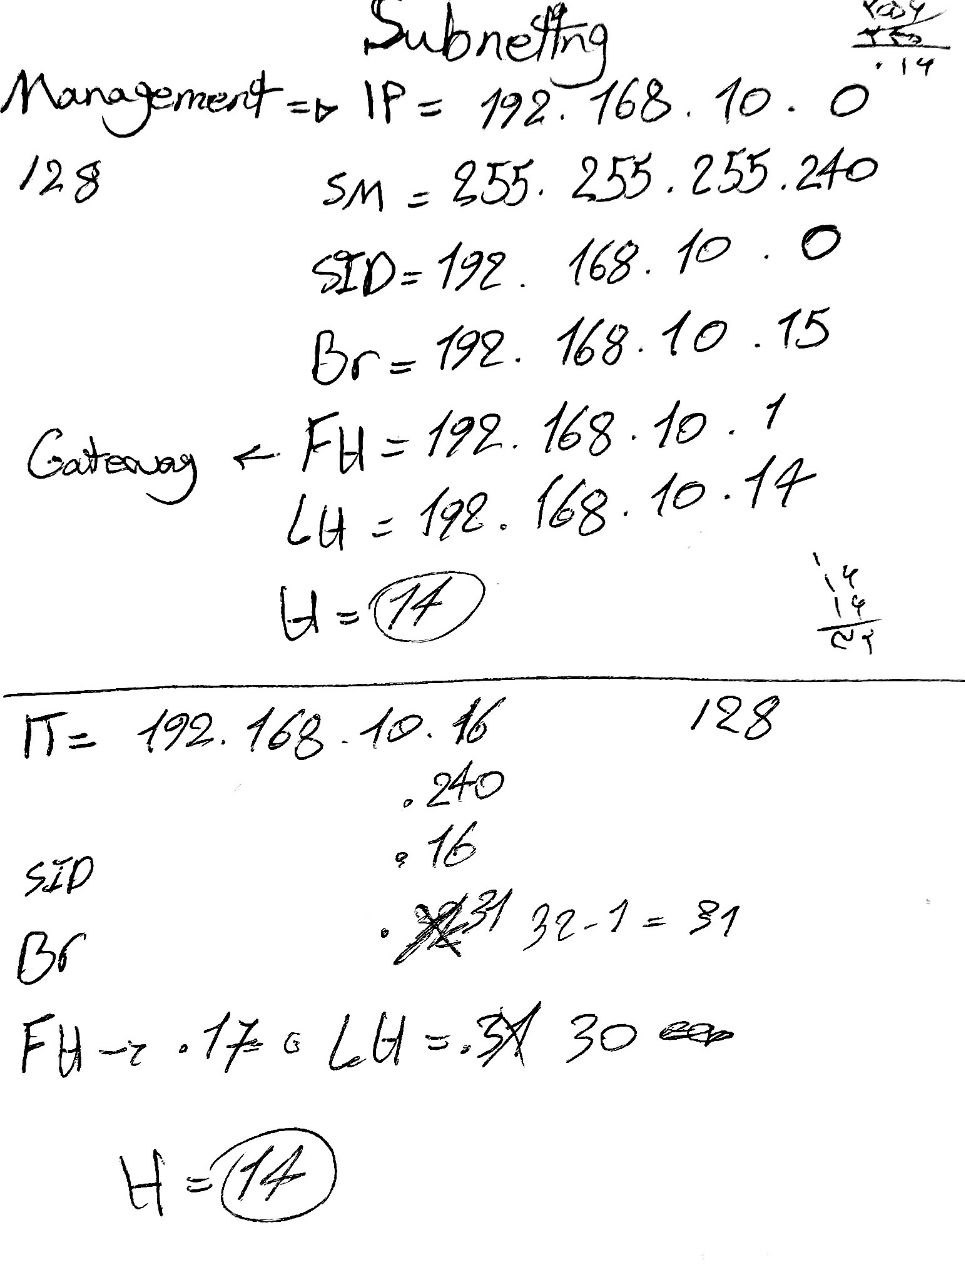 Subnetting
.14
Management => IP = 192.168.10.0
128
SM = 255.255.255.240
SID = 192.168.10.0
Br = 192.168.10.15
Gateway ← FH = 192.168.10.1
LH = 192.168.10.14
H = 14
IT = 192.168.10.16 128
.240
.16
SID
Br .31 32-1 = 31
FH → .17 LH = . 30
H = 14